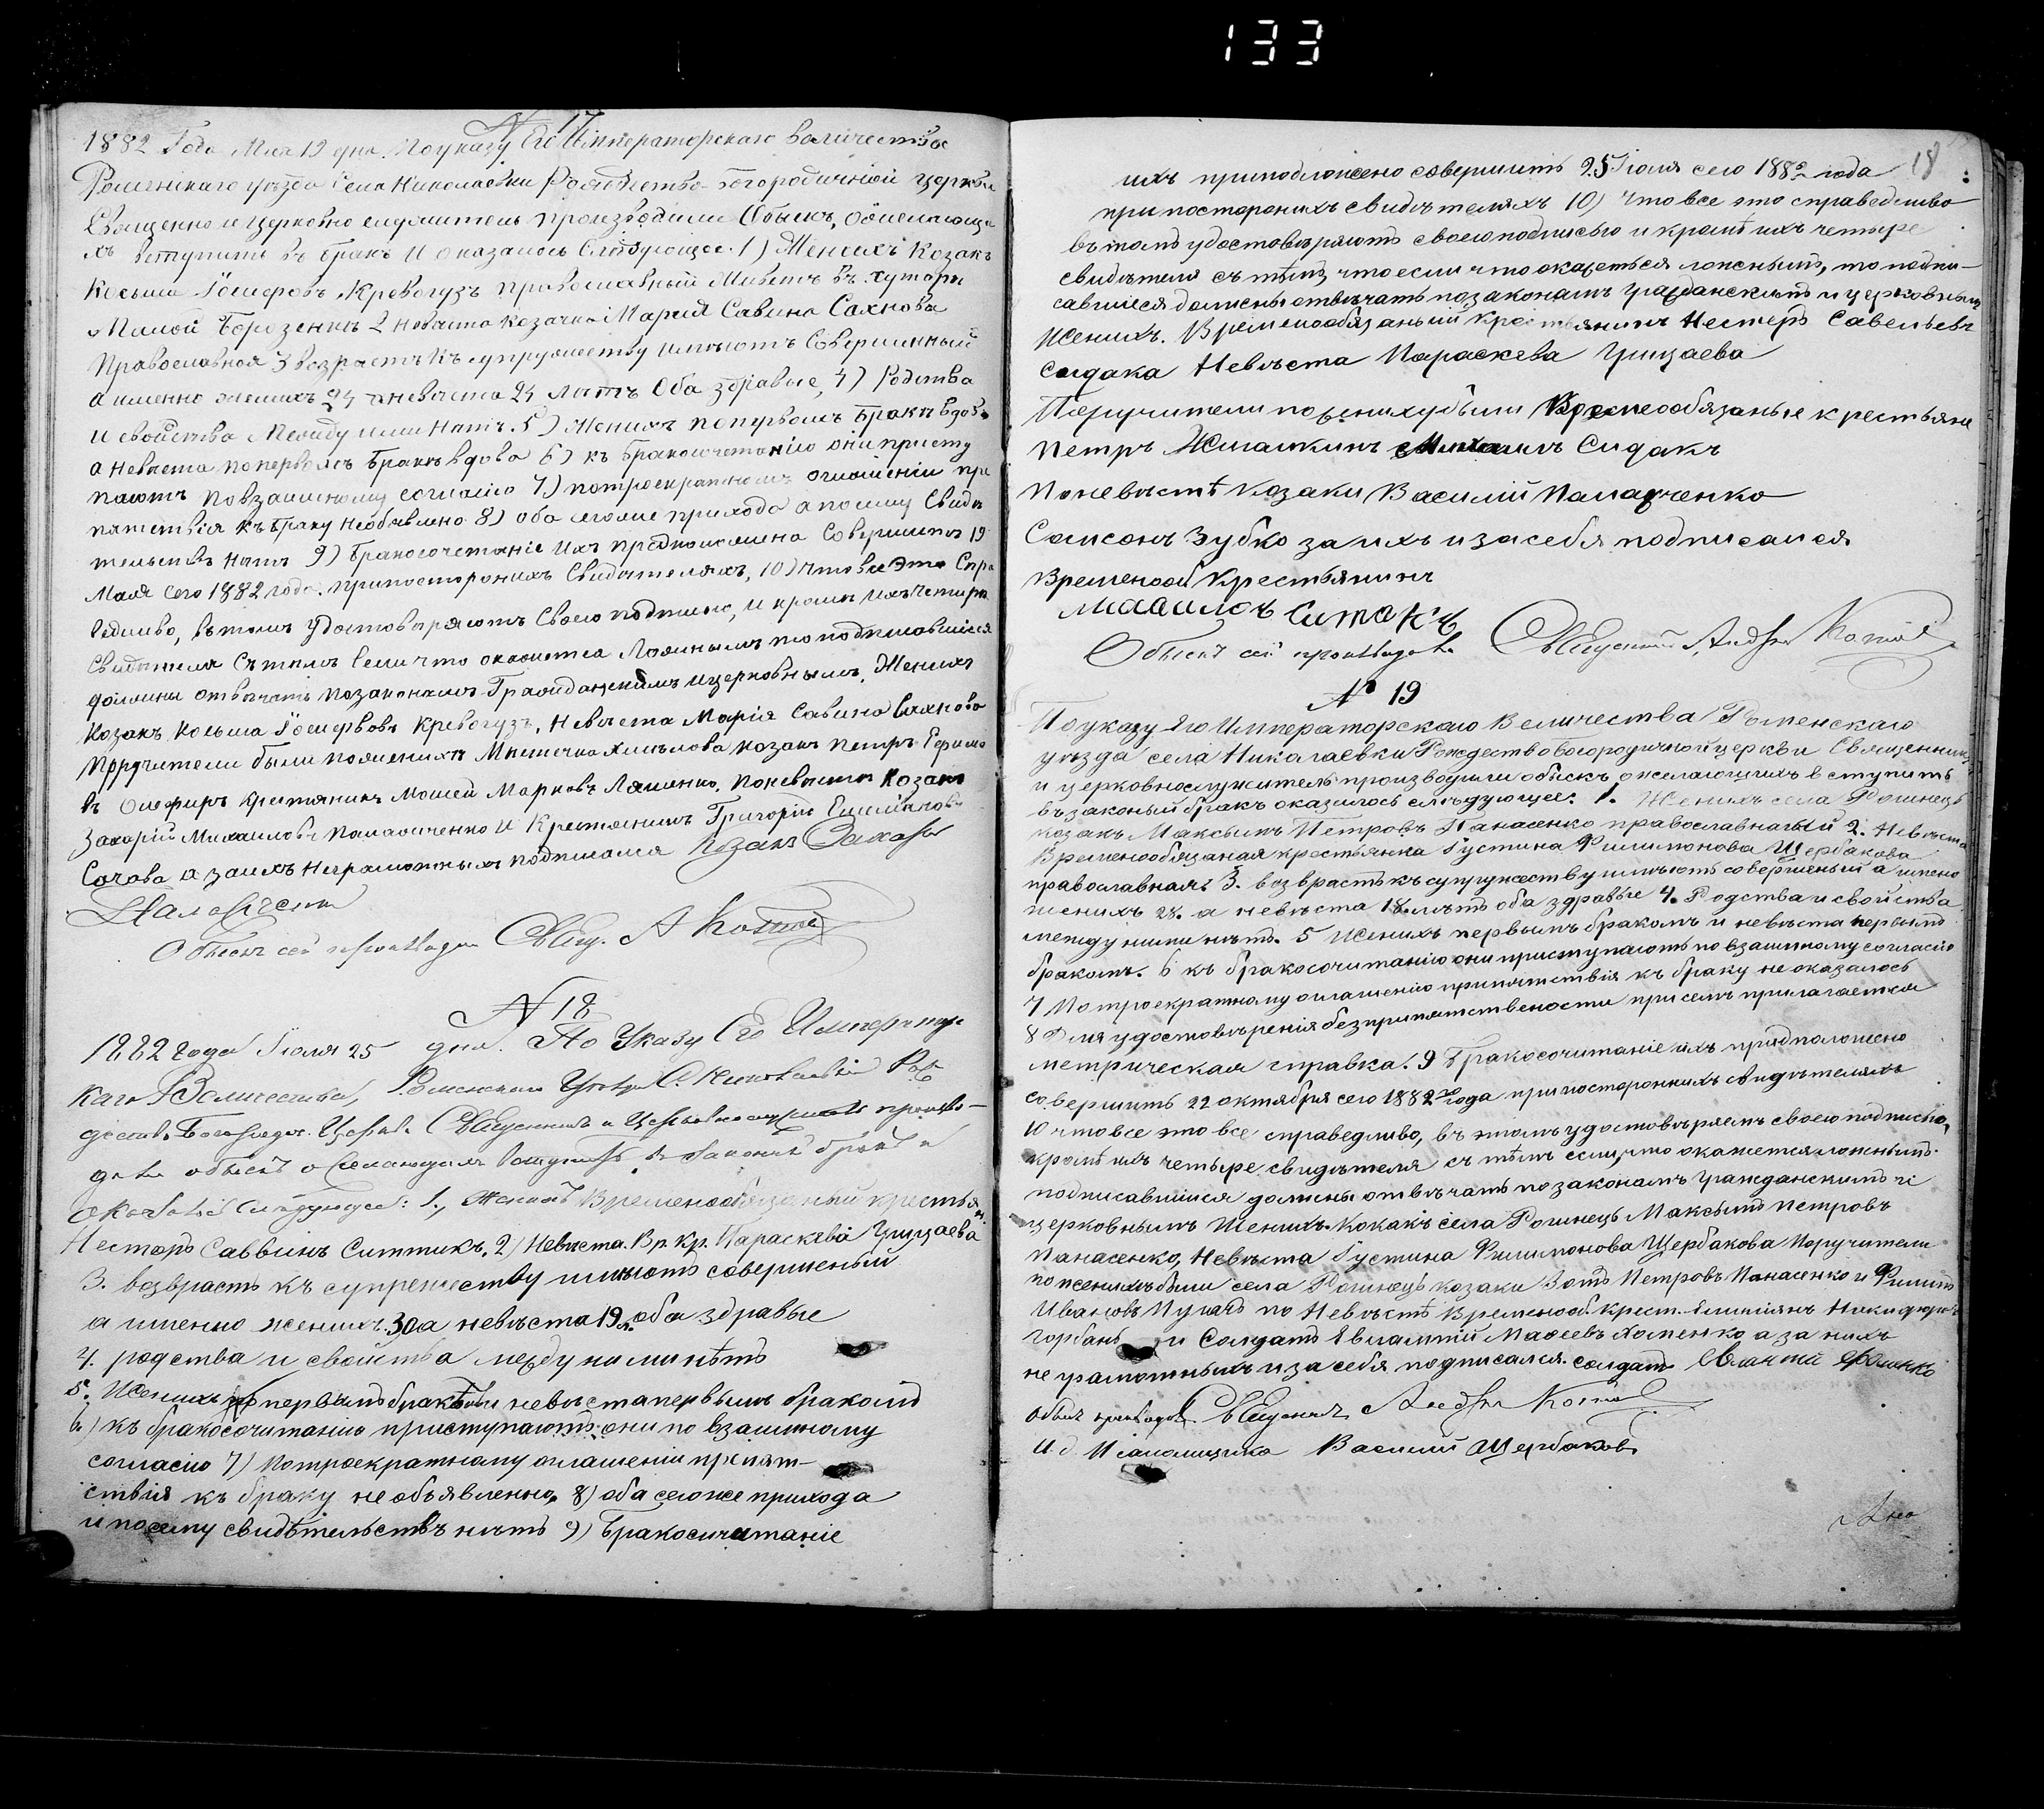 133
N 17
1882 Года Мая 19 дня. По указу Его Императорскаго Величества
Роменскаго уезда Села Николаевки Рождество-Богородичной церкви
Священно и церковно служитель производили Обыскъ, о желающи
хъ вступить въ бракъ И оказалось Следующее. 1) Женихъ Козакъ
Косьма Іосифовъ Кревогузъ православный Живетъ въ хуторѣ
Малой Борозенки 2 невѣста козачка Марія Савина Сахнова
Православная 3 возрастъ къ супружеству имѣютъ Совершенный
а именно женихъ 24 а невѣста 24 лѣтъ Оба здравые, 4) Родства
и свойства Между ими Нѣтъ. 5) Женихъ по первомъ бракѣ вдов
а Невѣста по первомъ бракѣ вдова 6) къ бракосочетанію они присту
паютъ По взаимному согласію 7) по троекратномъ оглашеніи пре
пятствія къ браку необявлено 8) оба сегоже прихода а посему Свидѣ
тельствъ Нѣтъ 9) Бракосочетаніе Ихъ предположена Совершить 19
Мая сего 1882 года. при посторонихъ Свидетеляхъ, 10) что все это Спра
ведливо, въ томъ удостовѣряютъ Своею подписью, И кроме ихъ четыри
Свидѣтеля Съ темъ Если что окажется Ложнымъ то подписавшіеся
должны отвѣчать по законамъ Гражданскимъ и церковнымъ, Женихъ
Козакъ Косьма Іосифовъ Кревогузъ, Невѣста Марія Савина Сахнова
Поручители были по женихѣ Местечка Хмѣлова козакъ Петръ Ефимо
въ Олефиръ Крестянинъ Мосей Марковъ Ляшенко, По невѣсте Козакъ
Захарій Михаиловъ Паламиченко И Крестянинъ Григорій Емилянов
Сочава а за ихъ Неграмотныхъ подписался Козакъ Захарь
Паламиченко
Обыскъ сей производилъ Свящ. А Котов
N 18
1882 года Іюля 25 дня. По Указу Его Император
скаго Величества, Роменскаго Уезда С. Николаевки Рож
дество Богородич. Церкви Священникъ и Церковнослужитель произво-
дили обыскъ о желающихъ вступить въ законый бракъ и
оказалось следующее: 1., Женихъ Временообязаный крестьянин
Несторъ Саввинъ Ситтикъ. 2) Невѣста. Вр. Кр. Параскявія Грицаева
3. возврастъ къ супрежеству имѣютъ совершеный
а именно женихъ. 30 а невѣста 19 л. оба здравые
4. родства и свойства между ними нѣтъ
5. Женихъ первымъ бракомъ и невѣста первымъ бракомъ
6.) къ бракосочитанію приступаютъ они по взаимному
согласію 7) По троекратному оглашеніи препят-
ствія къ браку не объявленно. 8) оба сегоже прихода
и посему свидѣтельствъ нѣтъ 9) Бракосичитаніе
18
ихъ приподложено совершить 25 Іюля сего 1882 года
при посторонихъ свидѣтеляхъ 10) Что все это справедливо
въ томъ удостовѣряютъ своею подписью и кромѣ ихъ четыре
свидѣтеля съ тѣмъ, что если что окажеться ложнымъ, то подпи-
савшиеся должны отвѣчать по законамъ гражданскимъ и церковным
Женихъ. Временообязаный Крестьянинъ Нестеръ Савельевъ
Сидака Невѣста Параскева Грицаева
Поручители по жениху были Времеообязаные крестьяне
Петръ Жмалкинъ Михаилъ Сидакъ
По невѣстѣ Козаки Василій Памадченко
Самсонъ Зубко за ихъ и за себя подписался
Временооб Крестьянинъ
Михаилъ Ситакъ
Обыскъ сей производилъ Священникъ Андрей Котов
№ 19
По указу Его Императорскаго Величества Роменскаго
уѣзда села Николаевки Рождествобогородичной церкви Священникъ
и церковнослужитель производили обыскъ о желающихъ вступить
въ законый бракъ оказалось слѣдующее: 1. Женихъ села Рогинець
козакъ Максымъ Петровъ Панасенко православнагый 2. Невѣста
Временообязаная крестьянка Густина Филимонова Щербакова
православная 3. возврастъ къ супружеству имѣютъ совершеный а имено
женихъ 28. а невѣста 18. лѣтъ оба здравые 4. Родства и свойства
между ними нѣтъ. 5 Женихъ первымъ бракомъ и невѣста первымъ
бракомъ. 6 къ бракосочитанію они приступаютъ по взаимному согласію
7 По троекратному оглашенію припятствія къ браку не оказалось
8 Для удостовѣренія безприпятствености при семъ прилагается
метрическая справка. 9 Бракосочитаніе ихъ придположено
совершить 22 октября сего 1882 года при посторонихъ свидѣтеляхъ
10 что все это все справедливо, въ этомъ удостовѣряемъ своею подписью,
кромѣ ихъ четыре свидѣтеля съ тѣмъ если, что окажется ложнымъ.
подписавшиися должны отвѣчать по законамъ гражданскимъ и
церковнымъ Женихъ. Кокакъ села Рогинець Максымъ Петровъ
Панасенко, Невѣста Густина Филимонова Щербакова Поручители
по женихѣ были села Рогинець козаки Зотъ Петровъ Панасенко и Филипъ
Ивановъ Пугачъ по Невѣстѣ Временооб. Крест. Емиліянъ Никифоровъ
Горбань и Солдатъ Евламтій Маѳеевъ Хоменко, а за нихъ
не грамотныхъ и за себя подписался. солдатъ Евлантий Хоменко
Обыск производилъ Священникъ Андрей Котов
И. д. Псаломщика Василий Щербаковъ